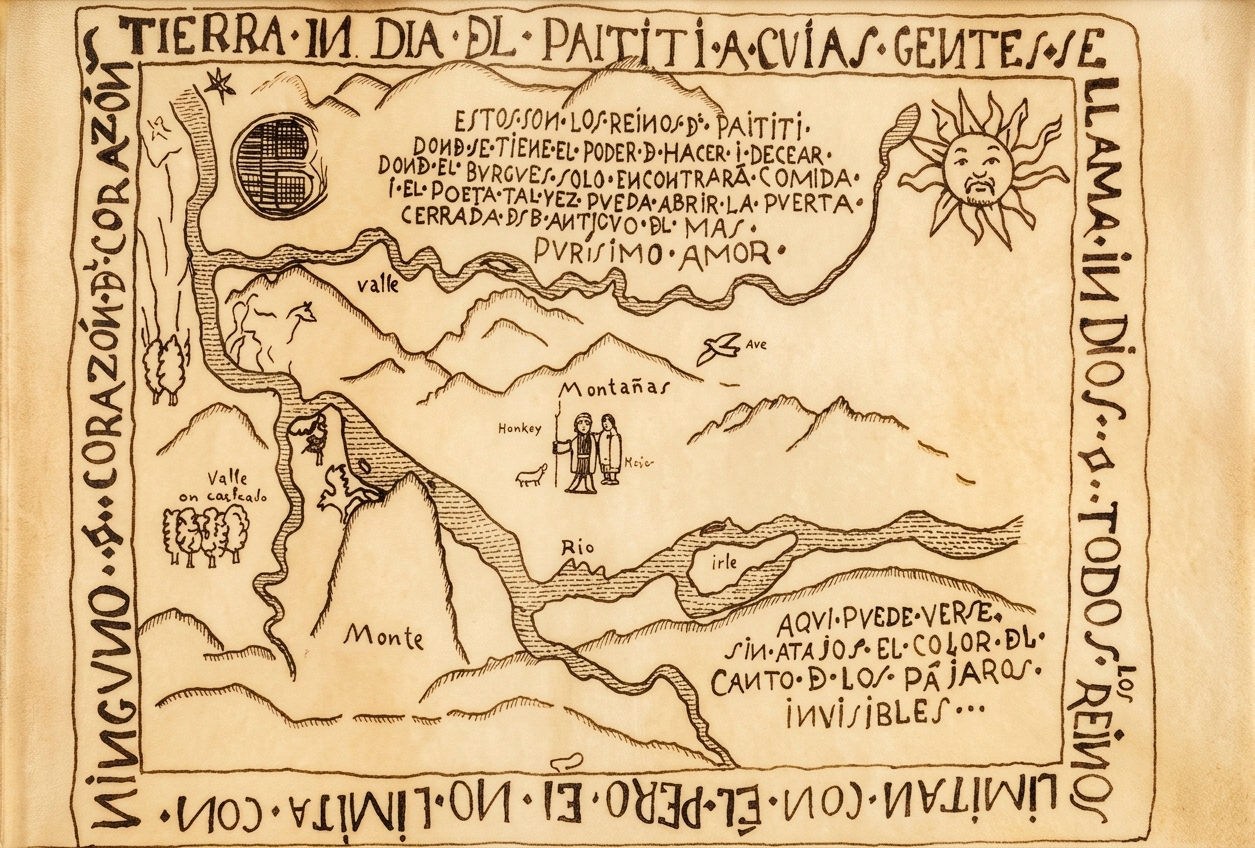 TIERRA·IN DIA·DL·PAITITI·A·CVIAS·GENTES·SE
LLAMA·IN DIOS...D..TODOS·LOS REINOS
LIMITAN·CON·ÉL·PERO·EI·NO·LIMITA·CON·
NINGVNO..S..CORAZÓN·DL·CORAZÓN
ESTOS·SON·LOS·REÍNOS·DL·PAITITI·
DOND·SE·TIENE·EL·PODER·D·HACER·I·DECEAR·
DOND·EL·BVRGVES·SOLO·ENCONTRARÁ·COMIDA·
I·EL·POETA·TAL·VEZ·PVEDA·ABRIR·LA·PVERTA·
CERRADA·DSB·ANTIGVO·DL·MAS·
PVRÍSIMO·AMOR·
valle
Ave
Montañas
Honkey
Valle
Rio
irle
Monte
AQVI·PVEDE·VERSE·
SIN·ATAJOS·EL·COLOR·DL·
CANTO·D·LOS·PÁJAROS·
INVISIBLES...